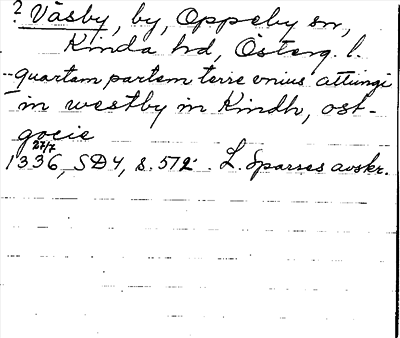 ? Väsby, by, Oppeby sn,
Kinda hd, Österg. l.
quartam partem terre vnius attungi
in westby in Kindh, ost-
gocie
27/7
1336, SD 4, s. 572. L. Sparres avskr.